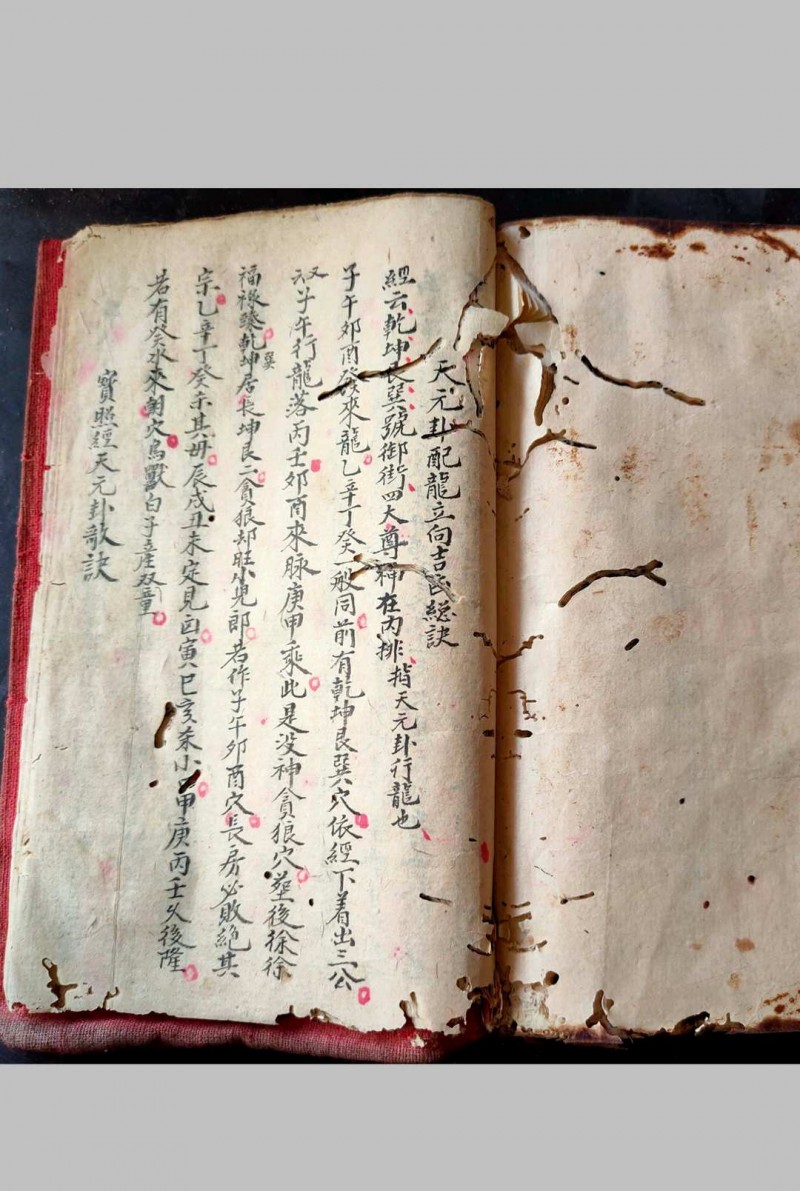 天元卦配龍立向吉凶総訣
經云乾坤艮巽號御街四大尊神在內排指天元卦行龍也
子午卯酉發來龍乙辛丁癸一般同前有乾坤艮巽穴依經下着出三公
又云子午行龍落丙壬卯酉來脉庚甲乘此是没神貪狼穴塟後徐徐
福祿臻乾坤居長坤艮二貪狼却旺小兒郎若作子午卯酉穴長房必敗絕其
巽
宗乙辛丁癸示其毋辰戌丑未定見凶寅巳亥来小甲庚丙壬乆後隆
若有癸水來朝穴烏獸白子產双童
寶照經天元卦歌訣